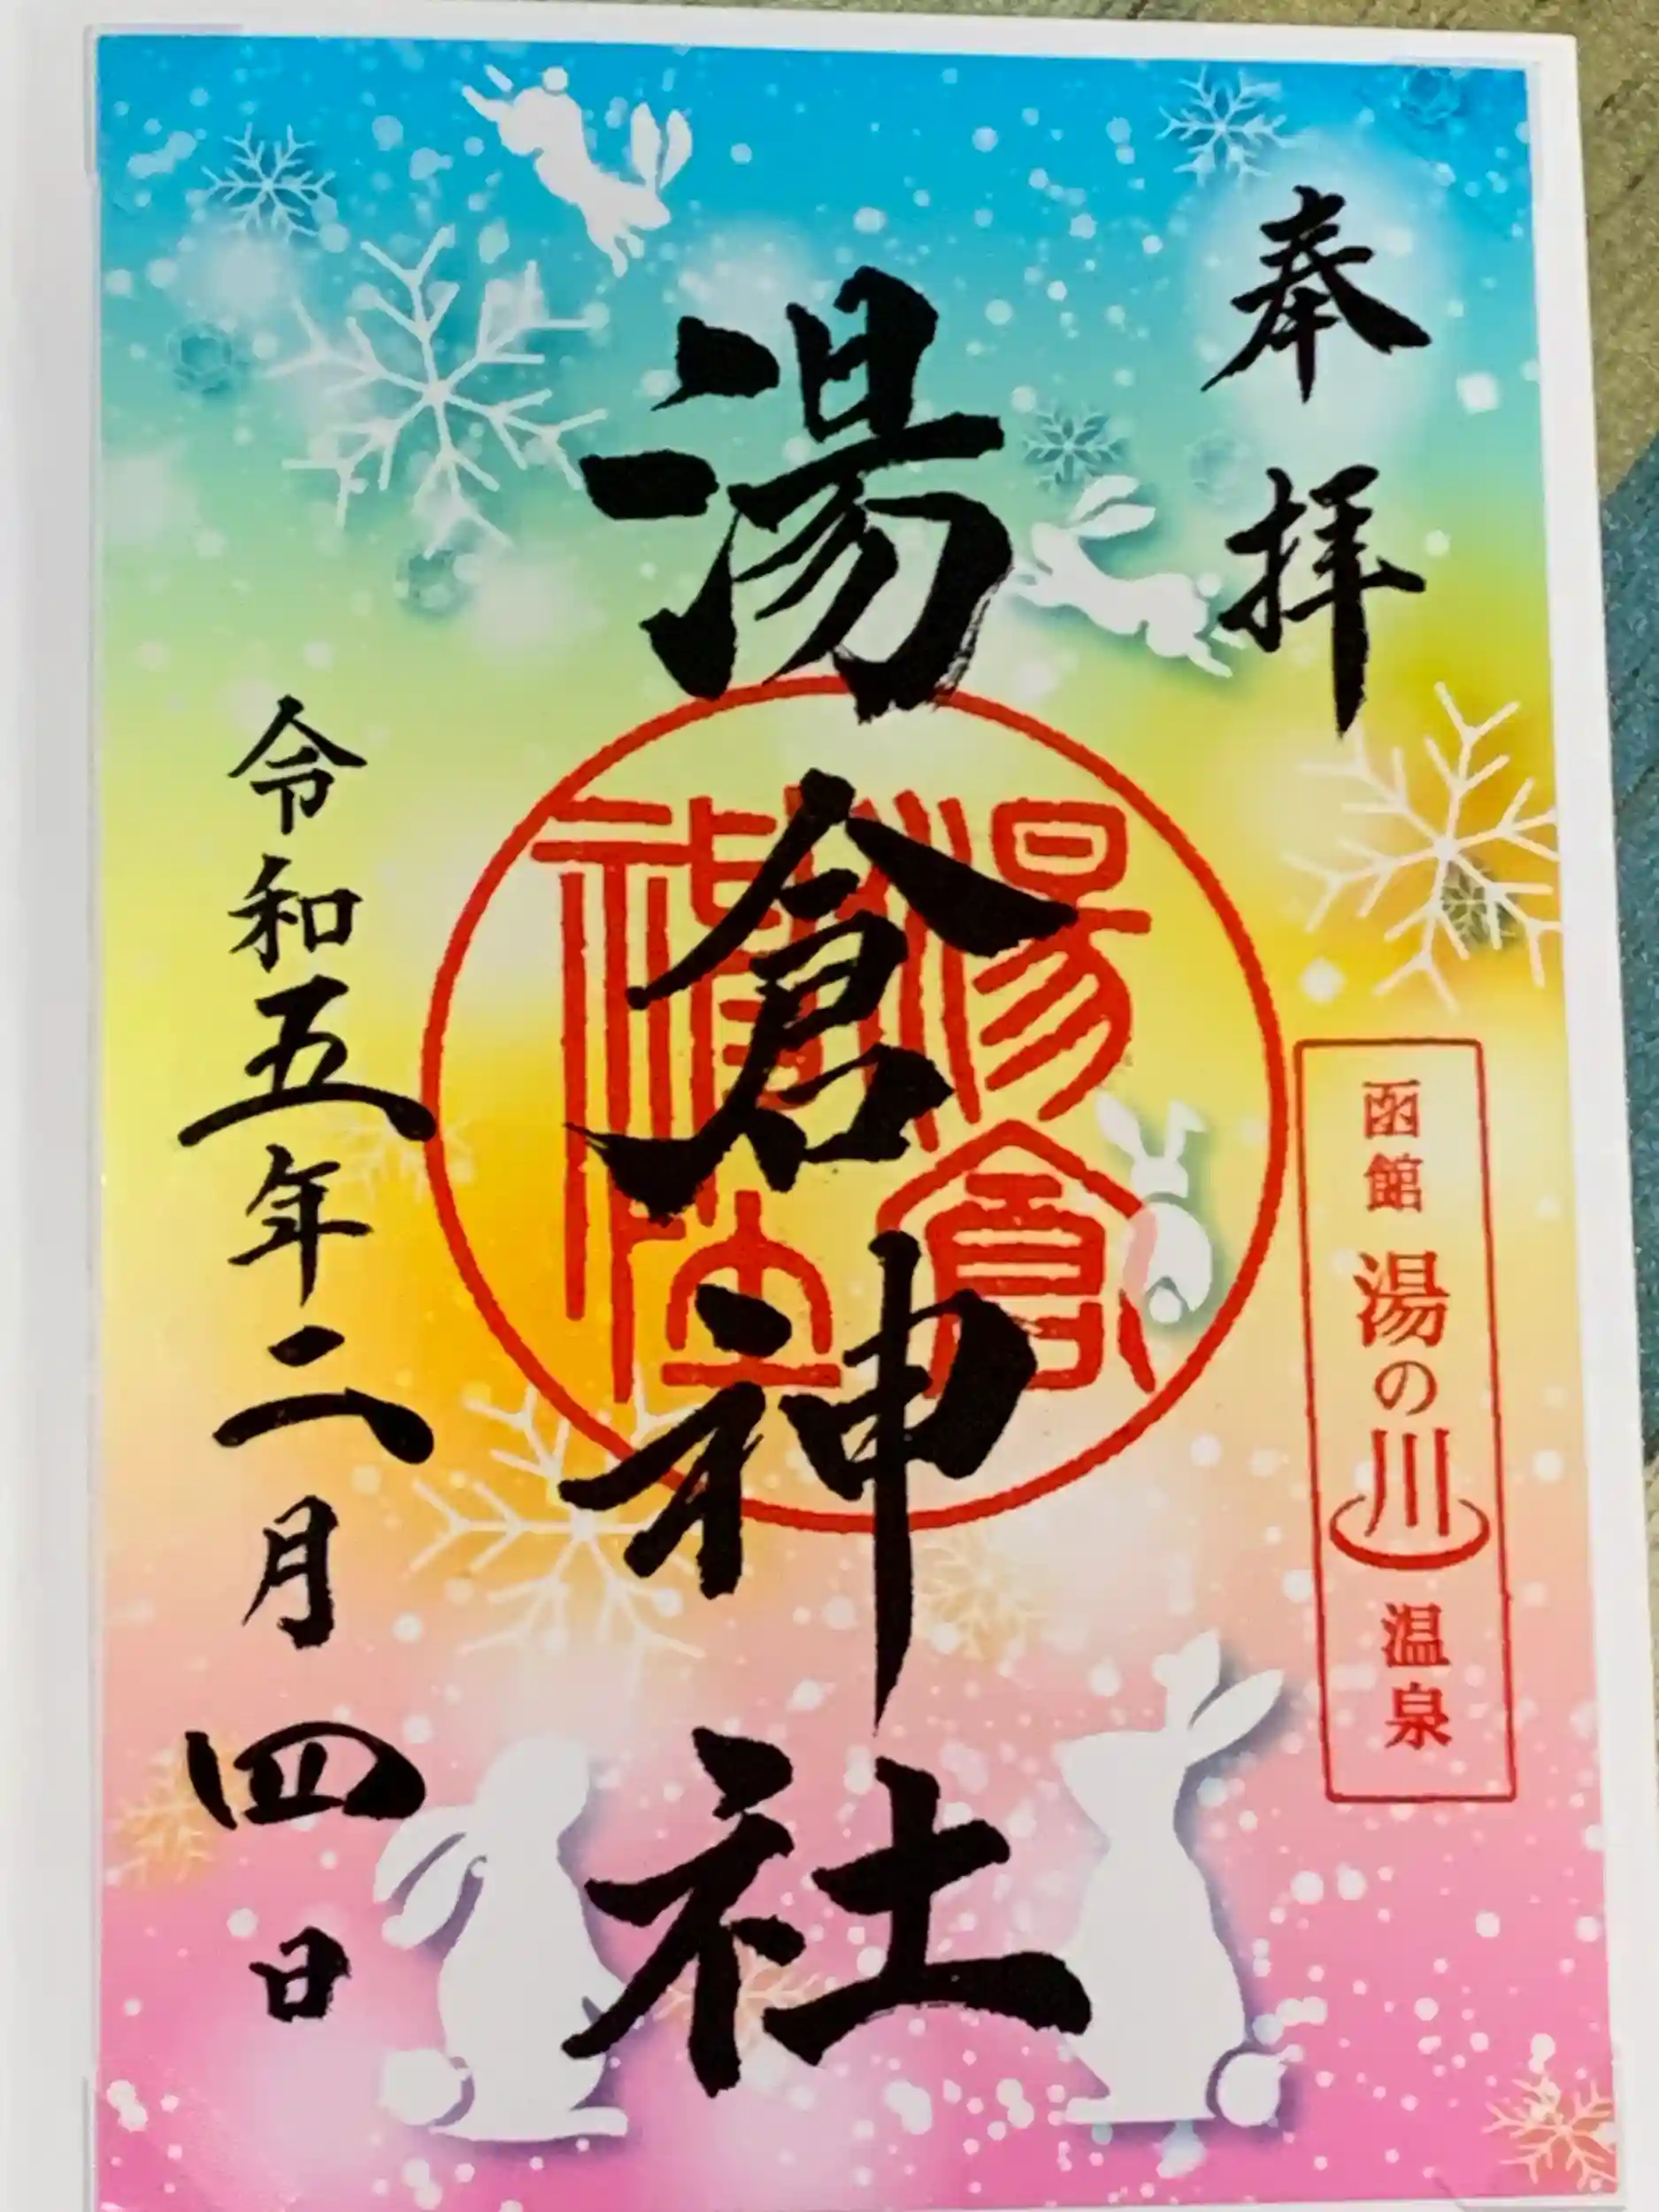 奉拝
函館湯の川温泉
湯倉神社
湯倉神社
令和五年二月四日